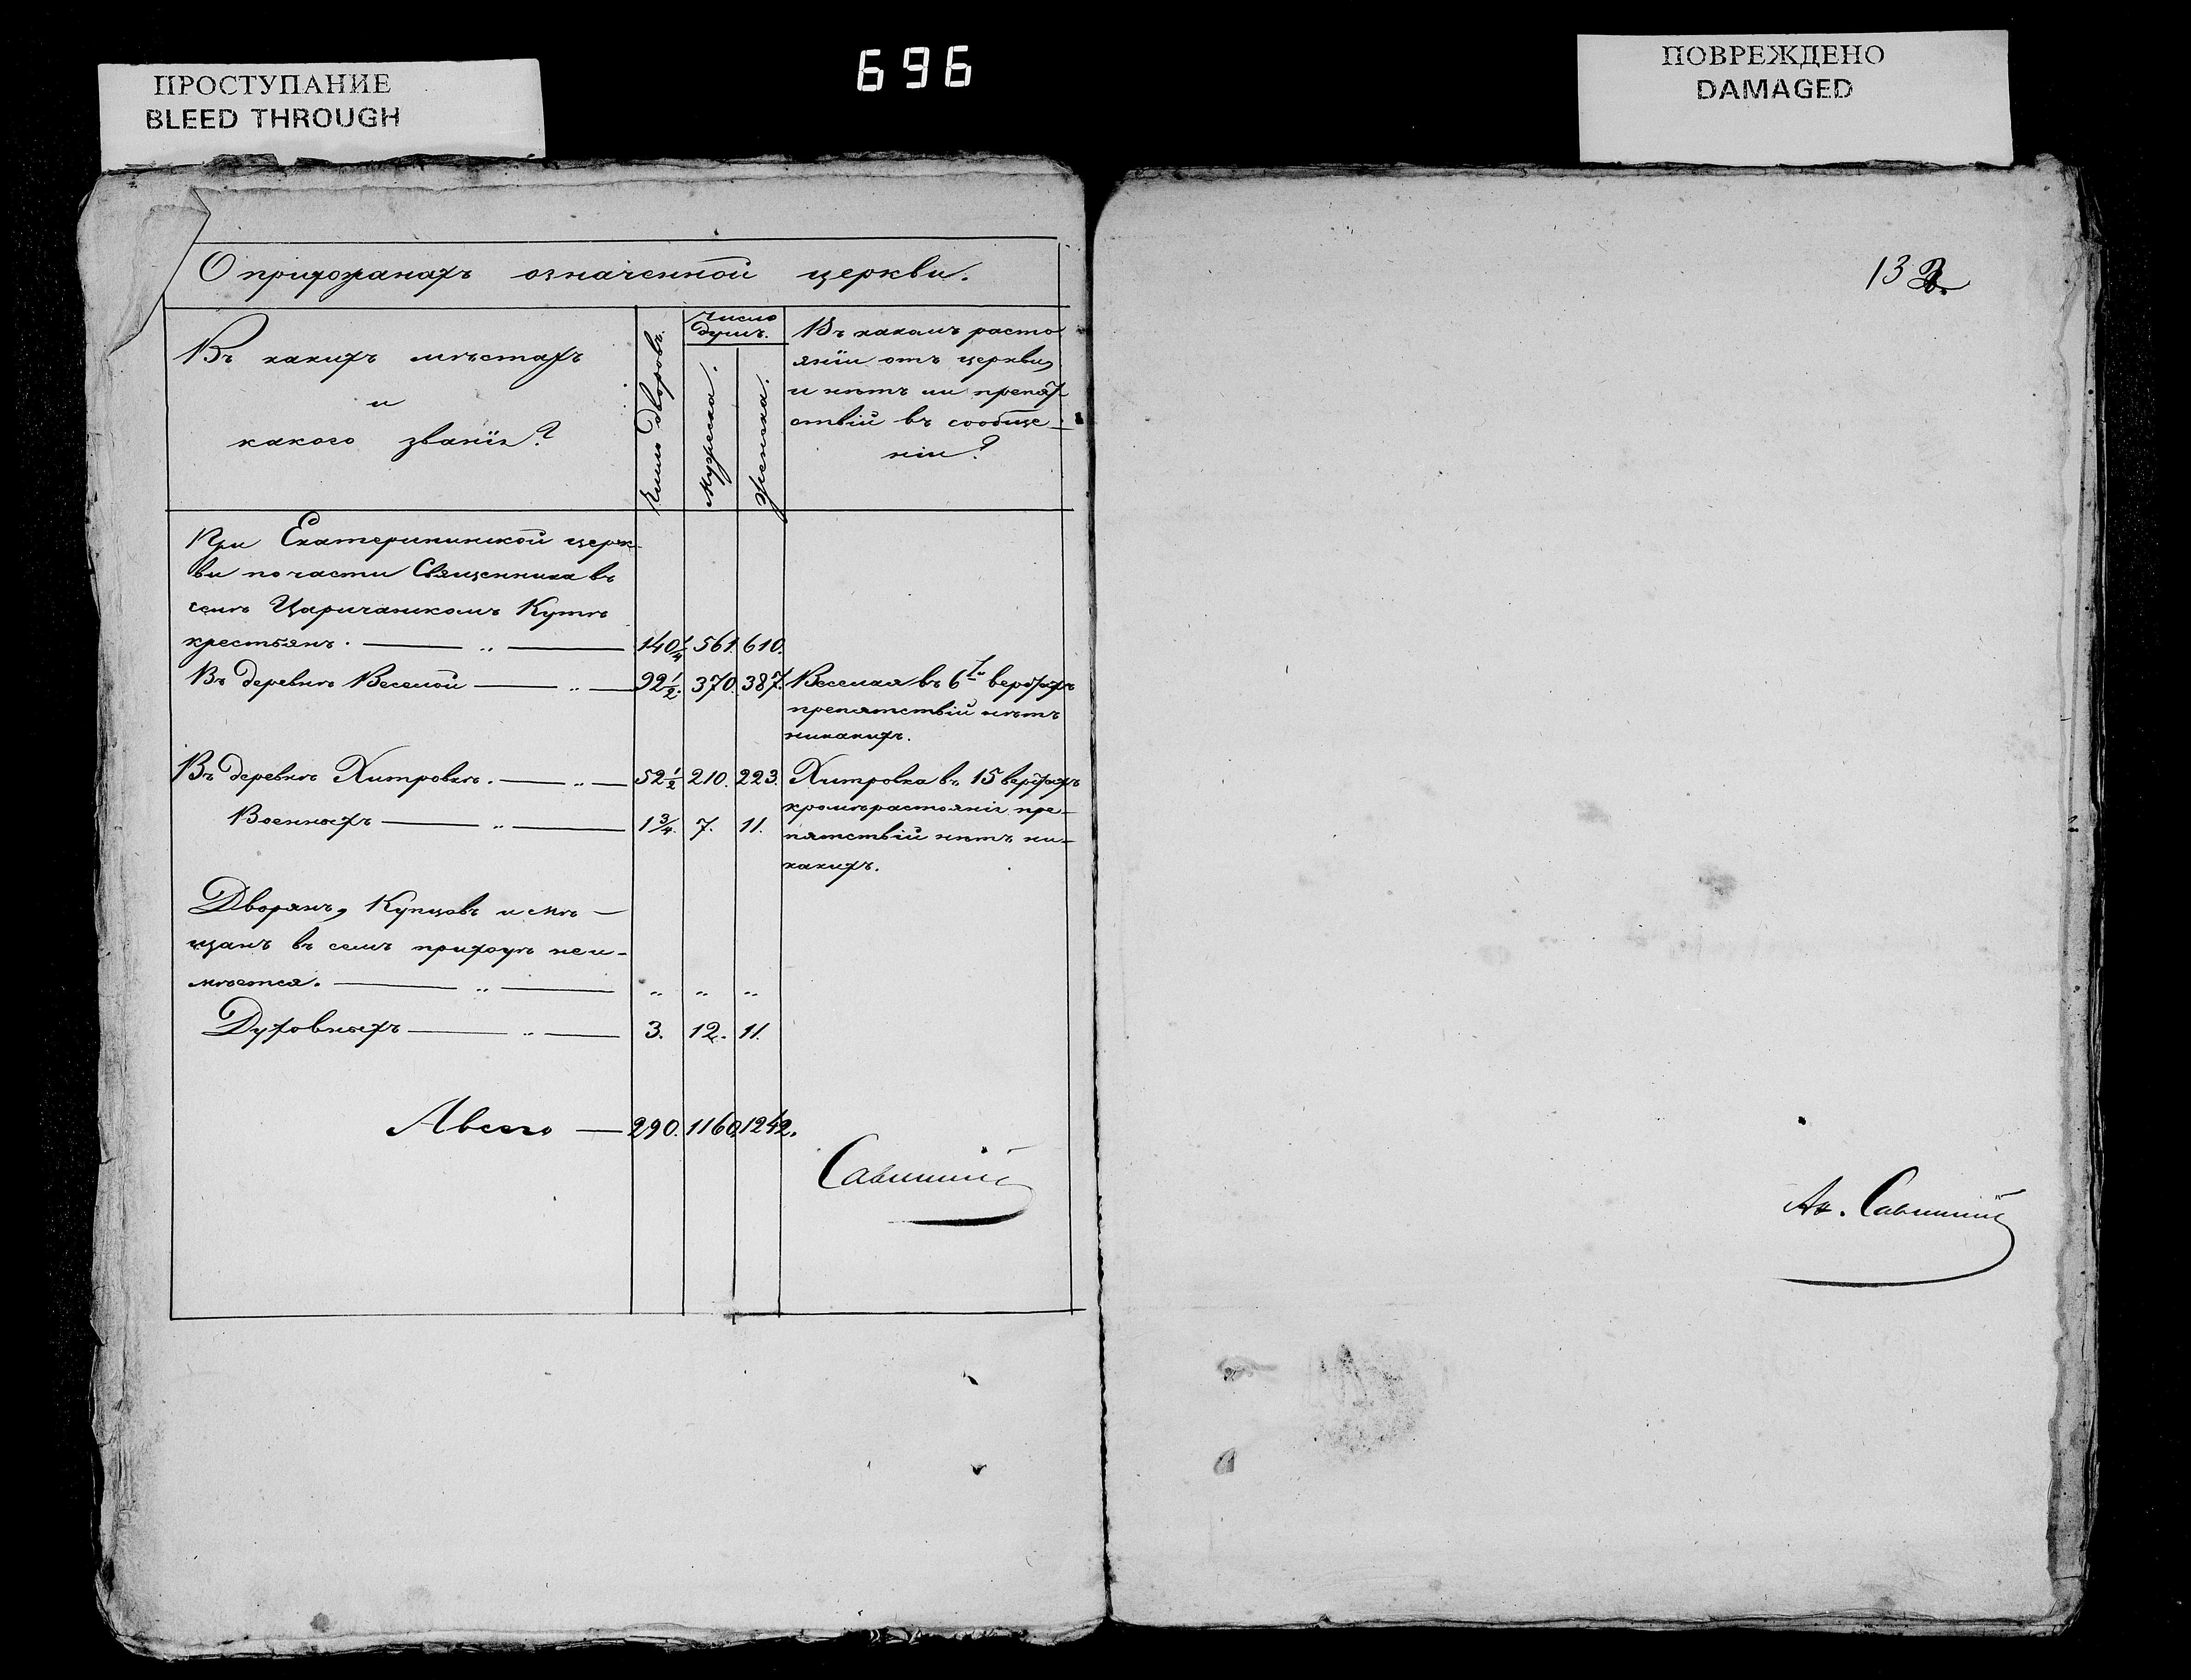 ПРОСТУПАНИЕ
BLEED THROUGH
696
ПОВРЕЖДЕНО
DAMAGED
О прихожанахъ означенной церкви.
Въ какихъ мѣстахъ
и
какого званія?
Число дворовъ.
Число
душъ.
Мужеска.
Женска.
Въ какомъ расто
яніи отъ церкви,
и нѣтъ ли препят
ствій въ сообще
ніи?
При Екатерининской церк-
ви по части Священника въ
селѣ Царичанскомъ Кутѣ
крестьянъ. — „ — 140 1/4 561. 610.
Въ деревнѣ Веселой — „ — 92 1/2. 370. 387. Веселая въ 6ти верстахъ
препятствій нѣтъ
никакихъ.
Въ деревнѣ Хитровкѣ. — „ — 52 1/2 210. 223. Хитровка въ 15 верстахъ
Военныхъ — „ — 1 3/4. 7. 11.
кромѣ растоянія пре-
пятствій нѣтъ ни-
какихъ.
Дворянъ, Купцовъ и мѣ —
щанъ въ семъ приходѣ неи-
мѣется. — „ — „ „ „
Духовныхъ — „ — 3. 12. 11.
А всего — 290. 1160. 1242.
132.